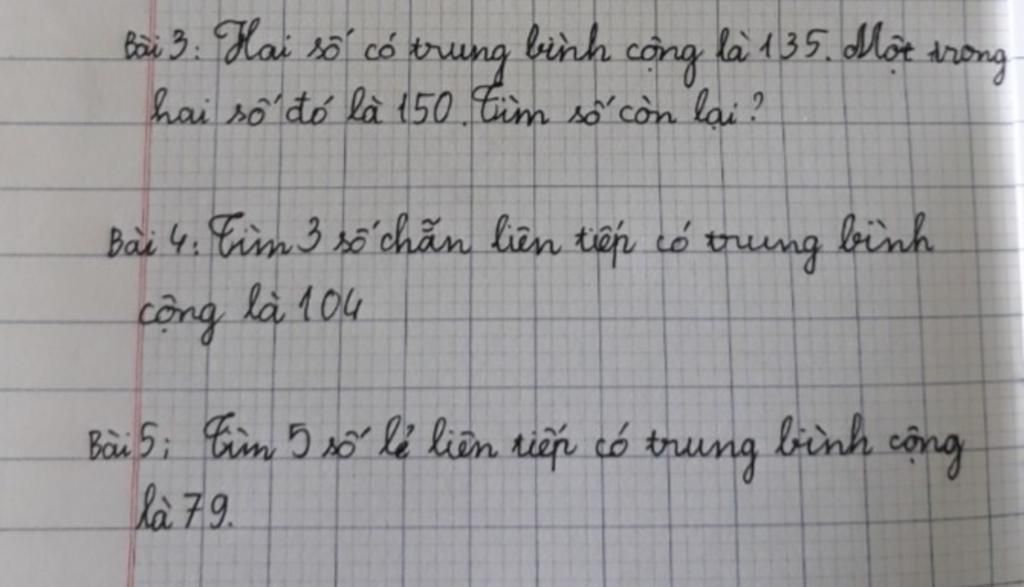 Bài 3: Hai số có trung bình cộng là 135. Một trong
hai số đó là 150. Tìm số còn lại?
Bài 4: Tìm 3 số chẵn liên tiếp có trung bình
cộng là 104
Bài 5: Tìm 5 số lẻ liên tiếp có trung bình cộng
là 79.